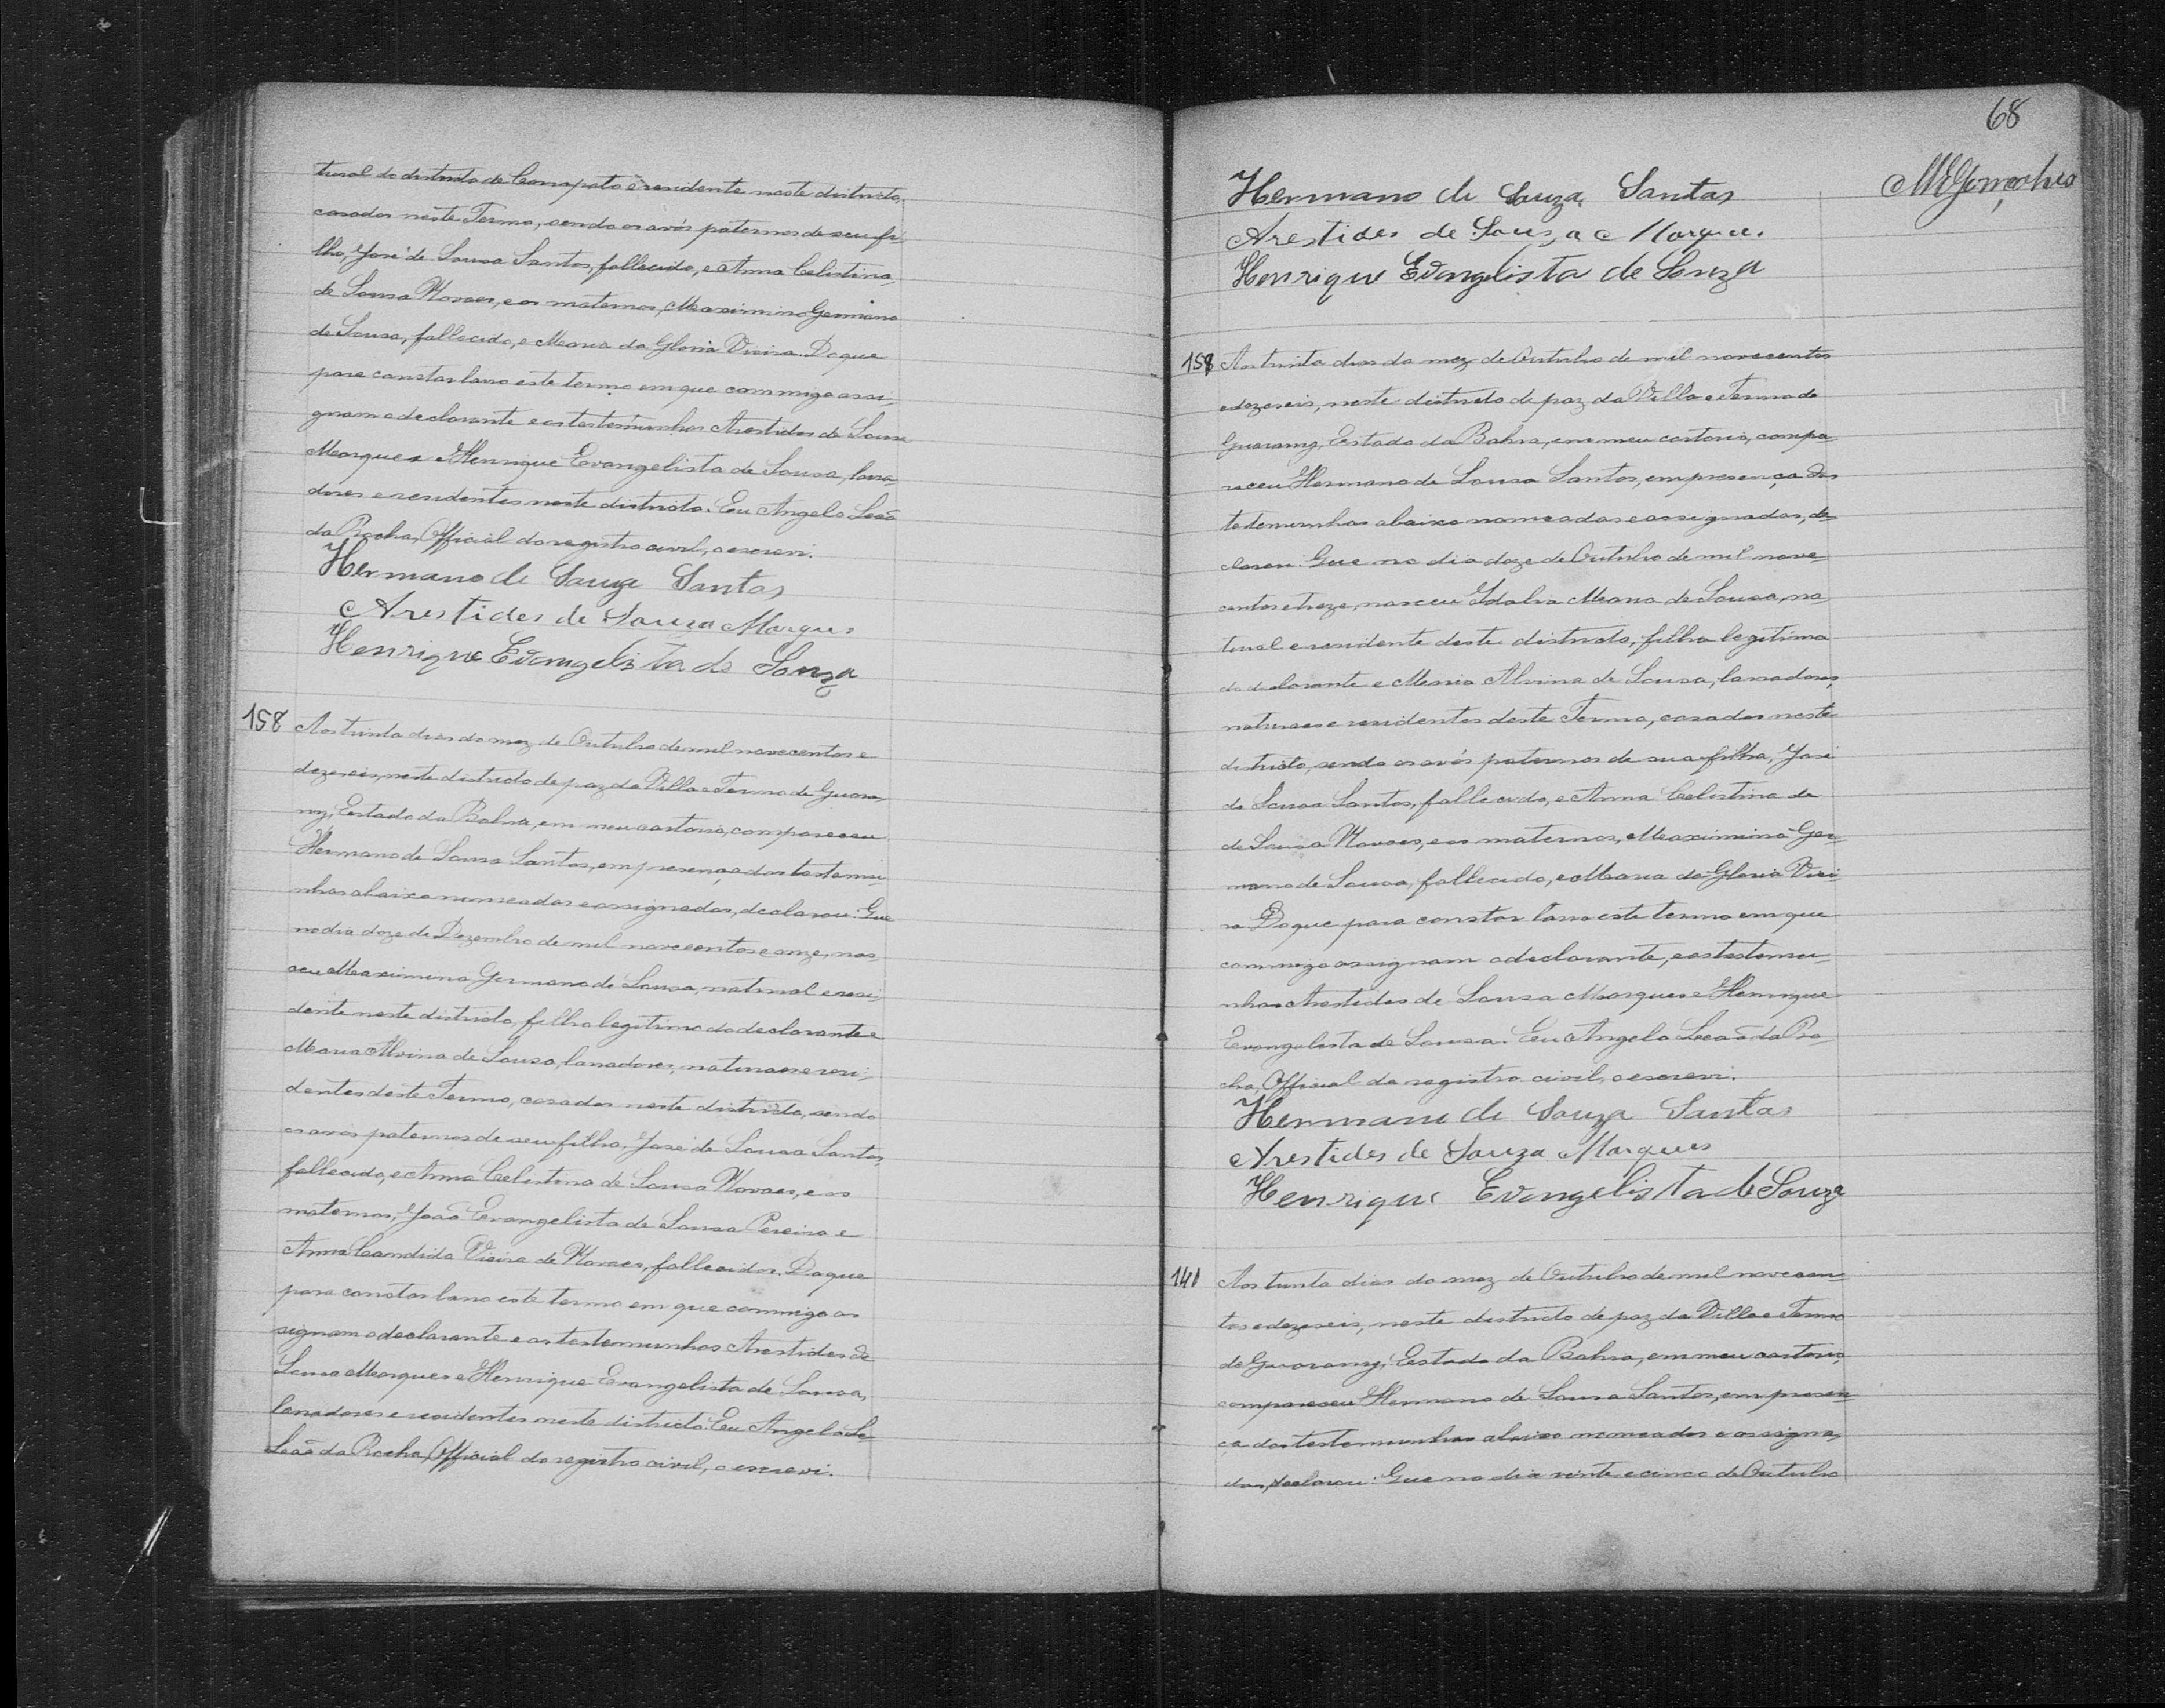 tural do districto de Carrapato e residente neste districto,
casados neste Termo, sendo os avós paternos de seu fi-
lho, José de Sousa Santos, fallecido, e Anna Celestina
de Sousa Novaes, e os maternos, Maximino Germano
de Sousa, fallecido, e Maria da Gloria Vieira. Do que
para constar lavro este termo em que commigo assi-
gnam o declarante e as testemunhas Arestides de Sousa
Marques e Henrique Evangelista de Sousa, lavra-
dores e residentes neste districto. Eu Angelo Leão
da Rocha, Official do registro civil, o escrevi.
Hermano de Souza Santos
Arestides de Souza Marques
Henrique Evangelista de Souza
158 Aos trinta dias do mez de Outubro de mil novecentos e
dezeseis, neste districto de paz da Villa e Termo de Guara-
ny, Estado da Bahia, em meu cartorio, compareceu
Hermano de Sousa Santos, em presença das testemu-
nhas abaixo nomeadas e assignadas, declarou: Que
no dia doze de Dezembro de mil novecentos e onze, nas-
ceu Maximino Germano de Sousa, natural e resi-
dente neste districto, filho legitimo do declarante e
Maria Alvina de Sousa, lavradores, naturaes e resi-
dentes deste Termo, casados neste districto, sendo
os avós paternos de seu filho, José de Sousa Santos,
fallecido, e Anna Celestina de Sousa Novaes, e os
maternos, João Evangelista de Sousa Pereira e
Anna Candida Vieira de Novaes, fallecidos. Do que
para constar lavro este termo em que commigo as-
signam o declarante e as testemunhas Arestides de
Sousa Marques e Henrique Evangelista de Sousa,
lavradores e residentes neste districto. Eu Angelo Le
Leão da Rocha, Official do registro civil, o escrevi.
68
Hermano de Souza Santos
Arestides de Souza Marques
Henrique Evangelista de Souza
158 Aos trinta dias do mez de Outubro de mil novecentos
e dezeseis, neste districto de paz da Villa e Termo de
Guarany, Estado da Bahia, em meu cartorio, compa-
receu Hermano de Sousa Santos, em presença das
testemunhas abaixo nomeadas e assignadas, de-
clarou: Que no dia doze de Outubro de mil nove-
centos e treze, nasceu Idalia Maria de Sousa, na-
tural e residente deste districto, filha legitima
do declarante e Maria Alvina de Sousa, lavradores,
naturaes e residentes deste Termo, casados neste
districto, sendo os avós paternos de sua filha, José
de Sousa Santos, fallecido, e Anna Celestina de
de Sousa Novaes, e os maternos, Maximino Ger-
mano de Sousa, fallecido, e Maria da Gloria Viei-
ra. Do que para constar lavro este termo em que
commigo assignam o declarante, e as testemu-
nhas Arestides de Sousa Marques e Henrique
Evangelista de Sousa. Eu Angelo Leão da Ro-
cha, Official do registro civil, o escrevi.
Hermano de Souza Santos
Arestides de Souza Marques
Henrique Evangelista de Souza
Aos trinta dias do mez de Outubro de mil novecen-
tos e dezeseis, neste districto de paz da Villa e Termo
de Guarany, Estado da Bahia, em meu cartorio,
compareceu Hermano de Sousa Santos, em presen-
ça das testemunhas abaixo nomeadas e assigna-
das, declarou: Que no dia vinte e cinco de Outubro